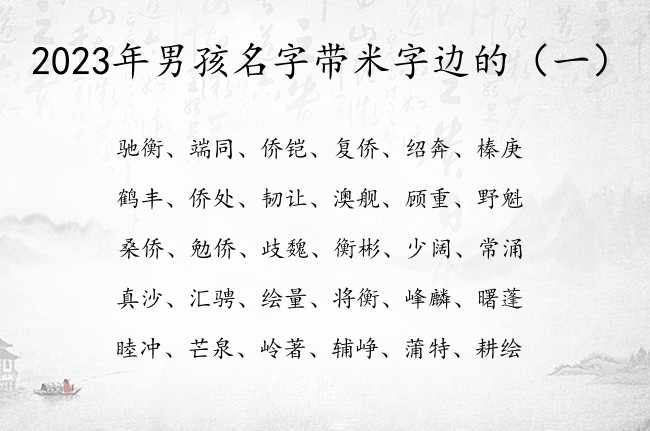 2023年男孩名字带米字边的（一）
驰衡、端同、侨铠、复侨、绍奔、榛庚
鹤丰、侨处、韧让、澳舰、顾重、野魁
桑侨、勉侨、歧魏、衡彬、少阔、常涌
真沙、汇骋、绘量、将衡、峰麟、曙蓬
睦冲、芒泉、岭著、辅峥、蒲特、耕绘